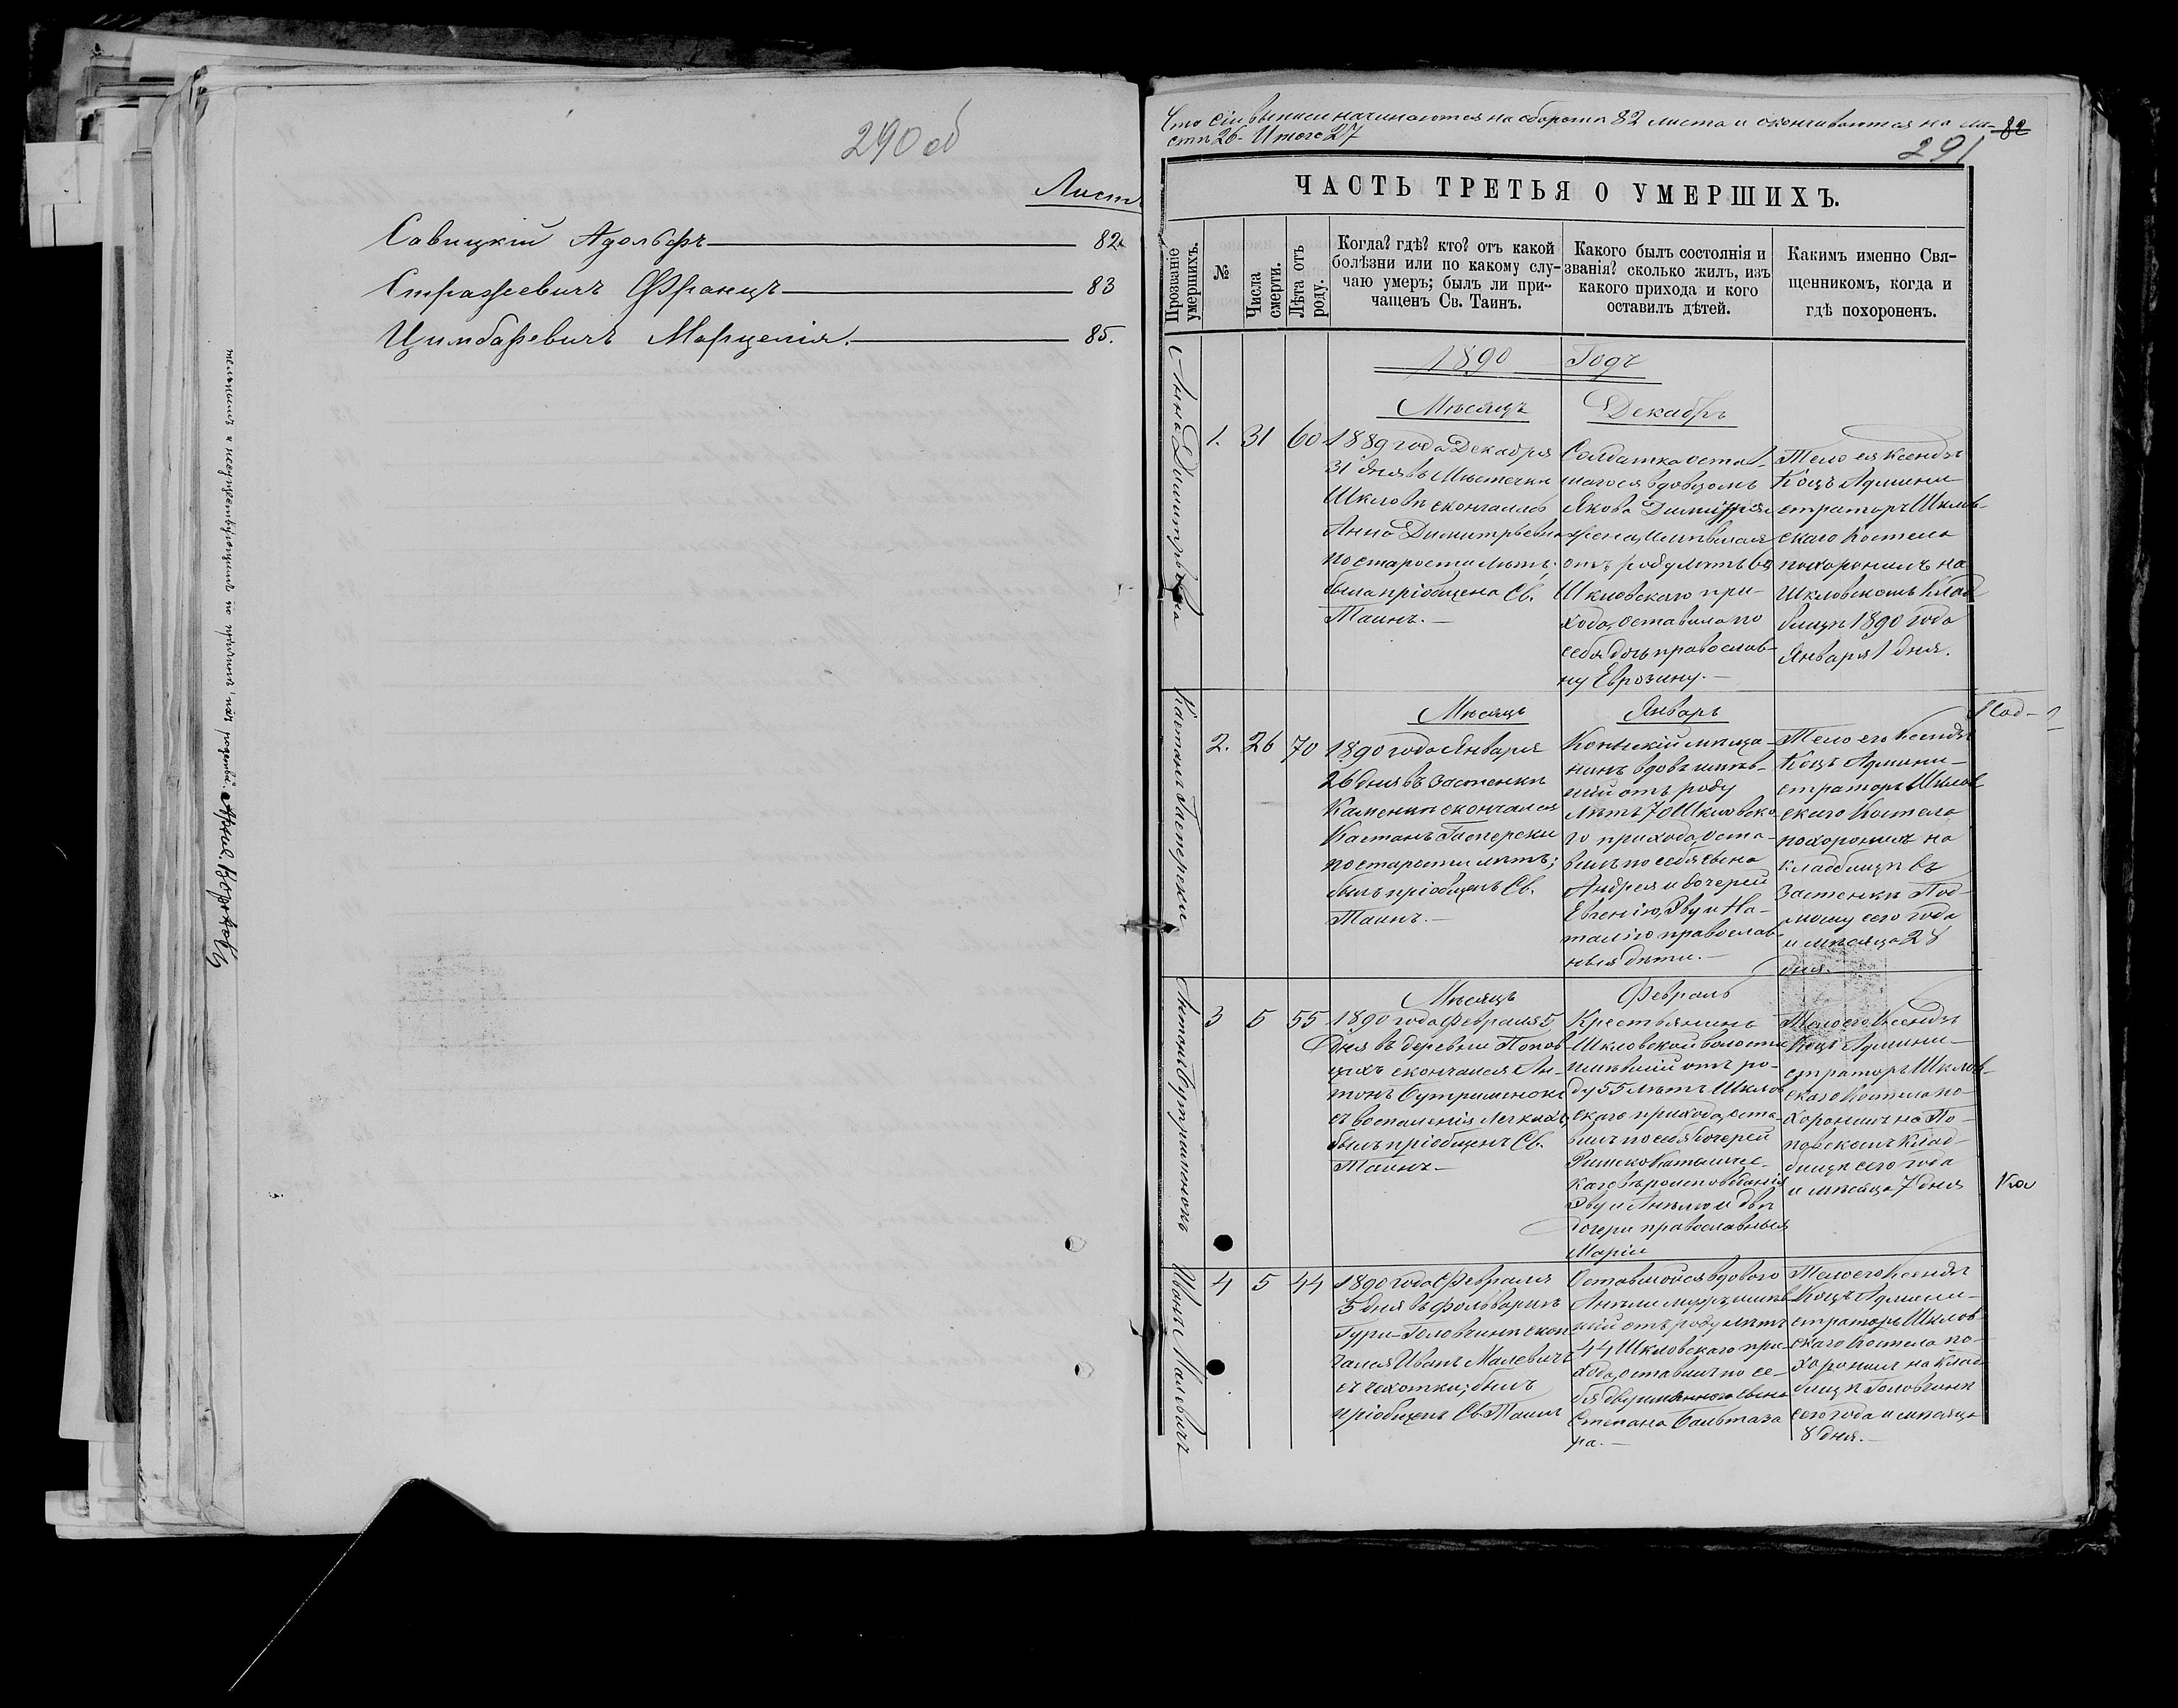 290 об
Листъ
Савицкій Адольфъ 82.
Стражевичъ Францъ 83
Цимбаревичъ Марцелія. 85.
Что сіи выписи начинаются на оборотѣ 82 листа и оканчиваются на ли-
стѣ 26 - Итого 27
82
291
ЧАСТЬ ТРЕТЬЯ О УМЕРШИХЪ.
Прозваніе умершихъ.
№
Числа смерти.
Лѣта отъ роду.
Когда? гдѣ? кто? отъ какой
болѣзни или по какому слу-
чаю умеръ; былъ ли при-
чащенъ Св. Таинъ.
Какого былъ состоянія и
званія? сколько жилъ, изъ
какого прихода и кого
оставилъ дѣтей.
Какимъ именно Свя-
щенникомъ, когда и
гдѣ похороненъ.
1890 Годъ
Мѣсяцъ Декабрь
Анна Димитрьевна
1. 31 60
1889 года Декабря
31 дня въ Мѣстечкѣ
Шкловѣ скончалась
Анна Димитрьевна
по старости лѣтъ;
была пріобщена Св.
Таинъ.—
Солдатка остав-
шагося вдовцомъ
Якова
жена, имѣвшая
отъ роду лѣтъ 60
Шкловскаго при-
хода, оставила по
себѣ дочь православ-
ну Еврозину.—
Тело ея Ксендзъ
Коцъ Админи-
страторъ Шклов-
скаго Костела
похоронилъ на
Шкловскомъ Клад
бищѣ 1890 года
Января 1 дня.
Мѣсяцъ Январь
Каетанъ Гасперски
2. 26 70
1890 года Января
26 дня въ Застенкѣ
Каменкѣ скончался
Каетанъ Гасперски
по старости лѣтъ;
былъ пріобщенъ Св.
Таинъ.—
Копыскій мѣща-
нинъ вдовъ имѣв-
шій отъ роду
лѣтъ 70 Шкловска
го прихода, оста-
вилъ по себѣ сына
Андрея и дочерей
Евгенію, Эву и На-
талію православ-
ныя дѣти.—
Тело его Ксендзъ
Коцъ Админи-
страторъ Шклов
скаго Костела
похоронилъ на
кладбищѣ въ
Застенкѣ Под-
сего года
и мѣсяца 28
дня.
Мѣсяцъ Февраль
Антонъ Бутрименокъ
3 5 55
1890 года Февраля 5
Дня въ деревни Попов
цахъ скончался Ан-
тонъ Бутрименокъ
съ воспаленія легкихъ,
былъ пріобщенъ Св.
Таинъ.—
Крестьянинъ
Шкловской волости
имѣвшій отъ ро-
ду 55 лѣтъ Шклов
скаго прихода, оста-
вилъ по себѣ дочерей
Римско Католичес-
каго вѣроисповѣданія
Эву и Анелю и двѣ
дочери православныя
Маріи
Тело его Ксендзъ
Коцъ Админи-
страторъ Шклов-
скаго Костела по-
хоронилъ на По-
повскомъ Клад-
бищѣ сего года
и мѣсяца 7 дня
Иванъ Малевичъ
4 5 44
1890 года Февраля
5 дня въ фольваркѣ
Гури-Головчинѣ скон
чался Иванъ Малевичъ
съ чахотки; былъ
пріобщенъ Св. Таинъ
Оставшейся вдовою
Анели мужъ, имѣв
шій отъ роду лѣтъ
44 Шкловскаго при-
хода, оставилъ по се-
бѣ сына
Степана Бальтаза
ра.—
Тело его Ксендзъ
Коцъ Админи-
страторъ Шклов-
скаго Костела по-
хоронилъ на Клад-
бищѣ Головчинѣ
сего года и мѣсяца
8 дня.—